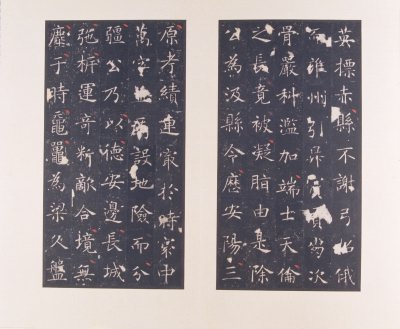 英標赤縣不謝弓招俄
雍州引
骨嚴科濫加端士天倫
之長竟被凝脂由是除
公為汲縣令歷安陽三
原考績連最於時寇中
萬 設地險而分
疆公乃以德安邊長城
弛柝運奇料敵合境無
塵于時黿鼉為梁久盤